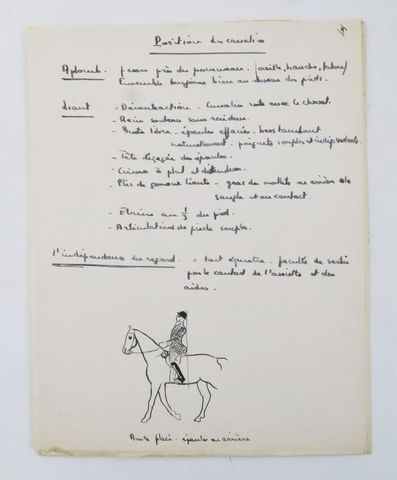 Position du cavalier
Aplomb. fesses près du pommeau (oreille, hanche, talon)
Ensemble toujours bien au dessus des pieds.
Liant - Décontraction - Cavalier reste avec le cheval.
- Rein soutenu sans raideur.
- Buste libre - épaules effacées - bras tombant
naturellement - poignets souples et indépendants.
- Tête dégagée des épaules.
- Cuisses à plat et détendues.
- Plis de genoux liants - gras des mollets en arrière de la
sangle et au contact.
- Etriers au 1/3 du pied.
- Articulations de pieds souples.
L'indépendance du regard. = tact équestre - faculté de sentir
par le contact de l'assiette et des
aides.
Buste placé - épaules en arrière